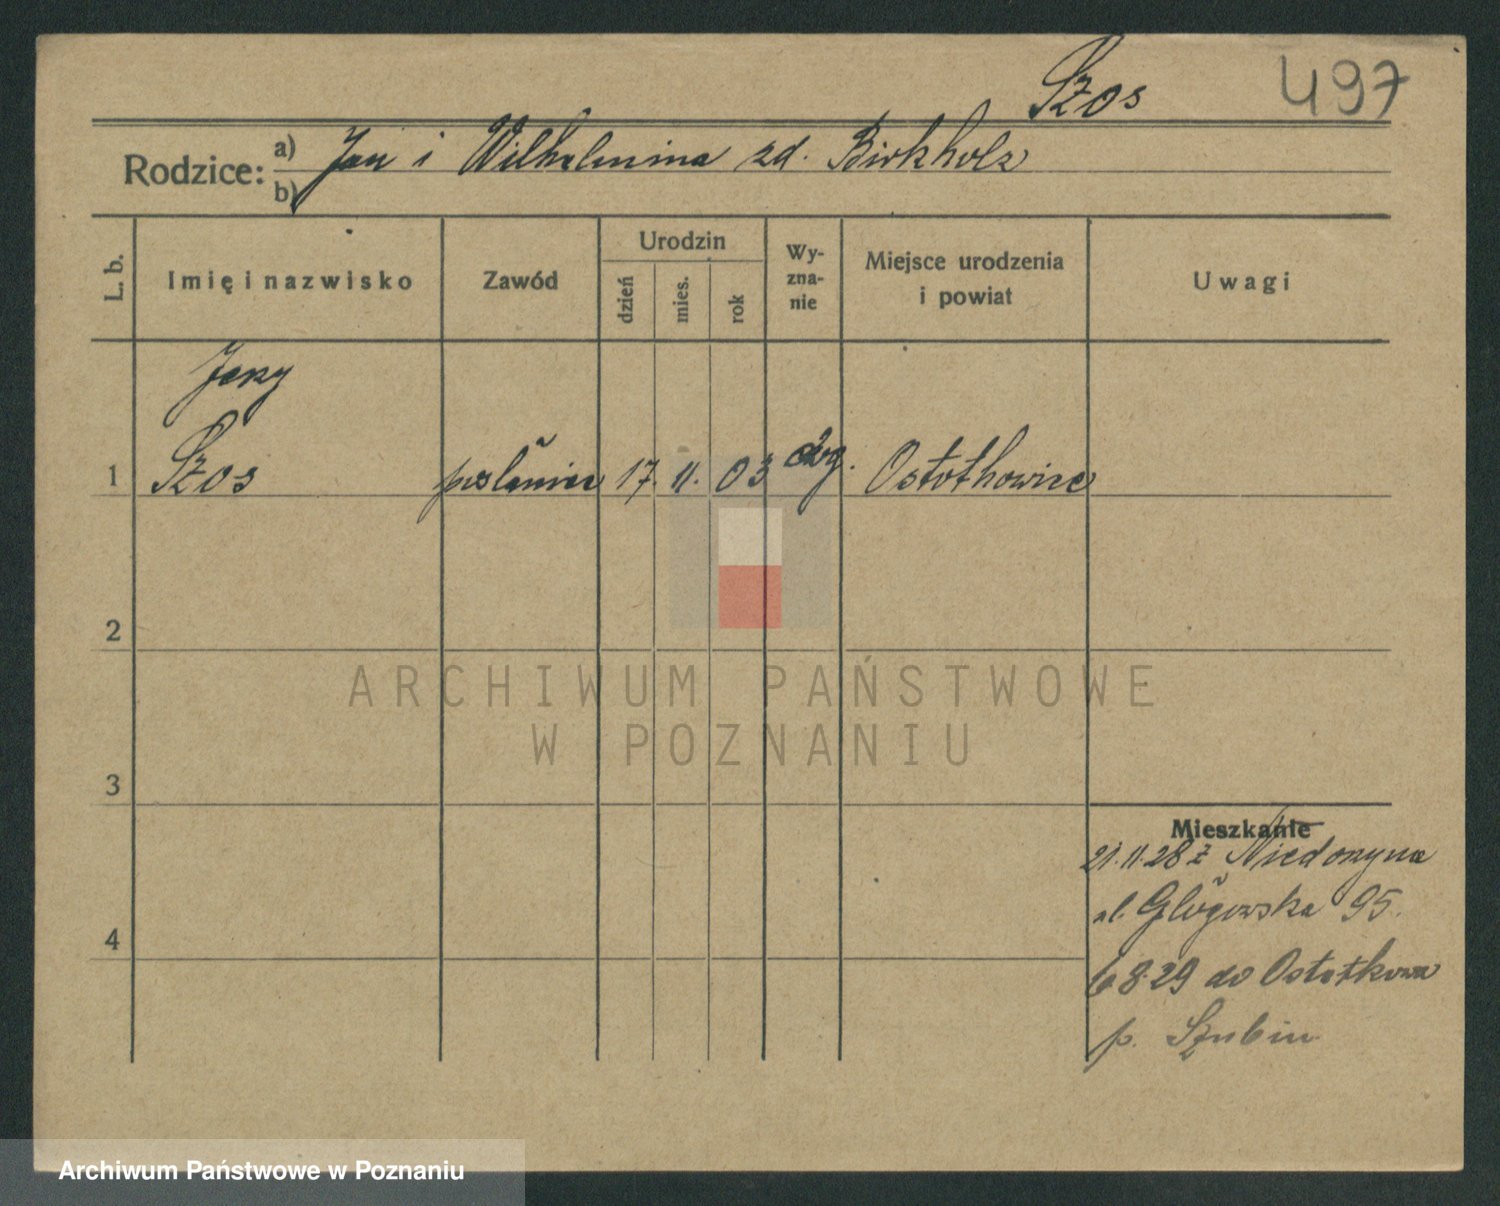 Szos 497
Rodzice: a) Jan i Wilhelmina zd. Birkholz
b)
L. b.
Imię i nazwisko
Zawód
Urodzin
dzień
mies.
rok
Wy-
zna-
nie
Miejsce urodzenia
i powiat
Uwagi
Jerzy
1 Szos 17. 11. 03 Ostotkowice
2
3
4
ARCHIWUM PAŃSTWOWE
W POZNANIU
Mieszkanie
21.11.28 z
ul. Głogowska 95.
6 8.29 do
p. Szubin
Archiwum Państwowe w Poznaniu